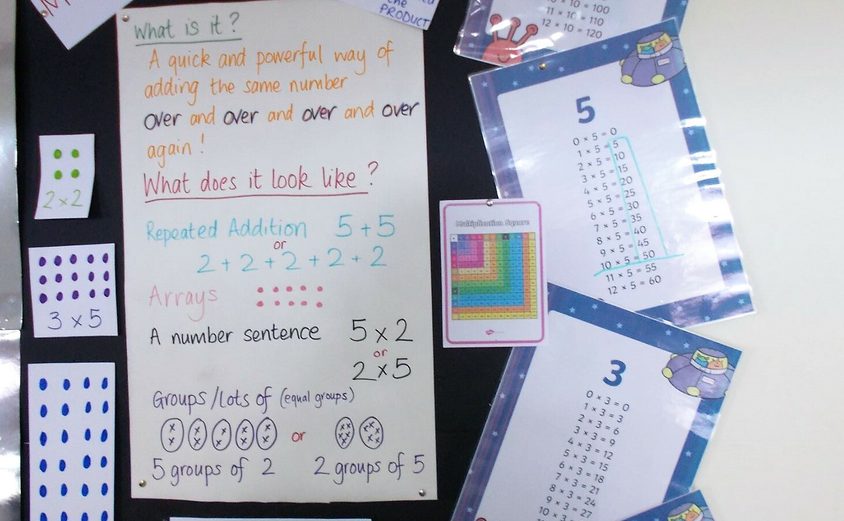 PRODUCT
What is it?
A quick and powerful way of
adding the same number
over and over and over and over
again!
What does it look like?
Repeated Addition 5+5
or
2+2+2+2+2
Arrays
A number sentence 5×2
or
2×5
Groups/lots of (equal groups)
or
5 groups of 2 2 groups of 5
2×2
3×5
Multiplication Square
11 × 10 = 110
12 × 10 = 120
5
0 × 5 = 0
1 × 5 = 5
2 × 5 = 10
3 × 5 = 15
4 × 5 = 20
5 × 5 = 25
6 × 5 = 30
7 × 5 = 35
8 × 5 = 40
9 × 5 = 45
10 × 5 = 50
11 × 5 = 55
12 × 5 = 60
3
0 × 3 = 0
1 × 3 = 3
2 × 3 = 6
3 × 3 = 9
4 × 3 = 12
5 × 3 = 15
6 × 3 = 18
7 × 3 = 21
8 × 3 = 24
9 × 3 = 27
10 × 3